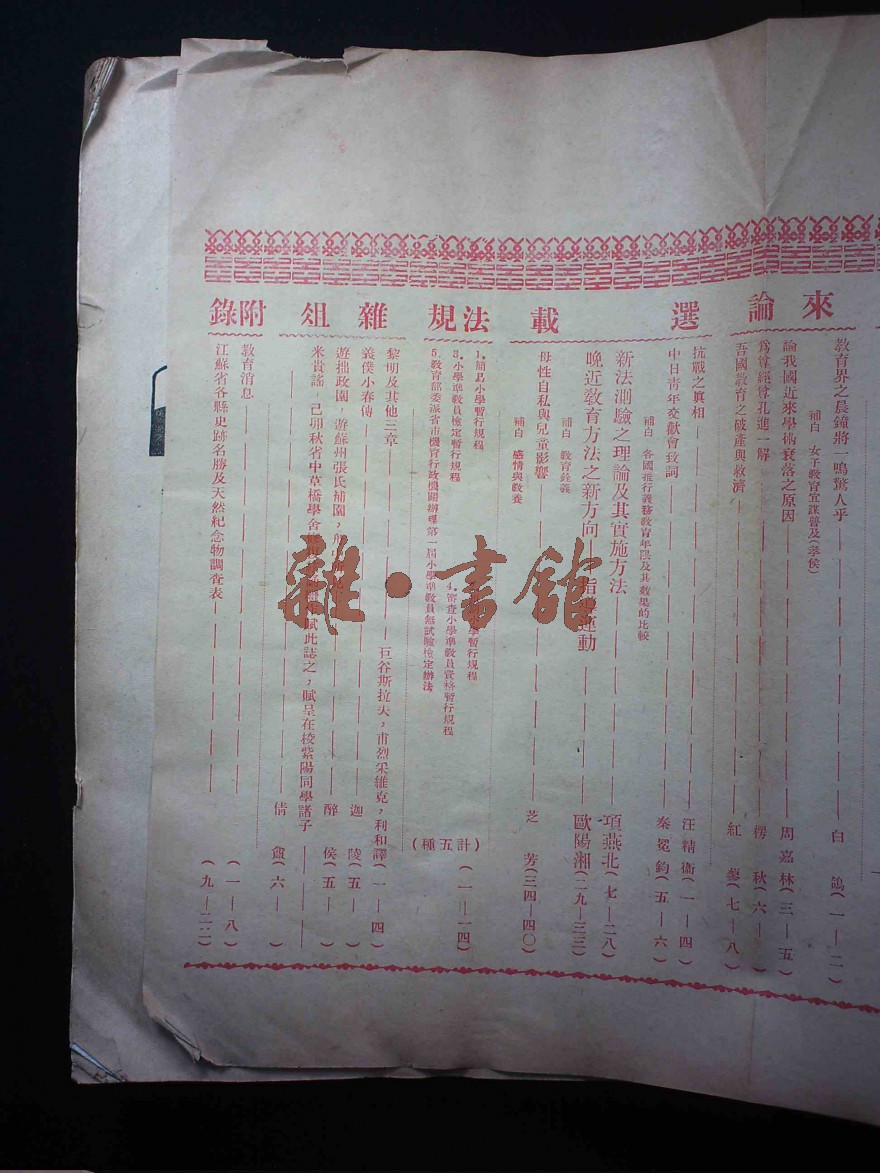 來論
教育界之晨鐘將一鳴驚人乎 白鴿(一—二)
補白 女子教育宜謀普及(孝侯)
論我國近來學術衰落之原因 周嘉林(三—五)
為尊經尊孔進一解 楞秋(六—)
吾國教育之破產與救濟 紅蓼(七—八)
選載
抗戰之真相 汪精衛(一—四)
中日青年交獻會致詞 秦冕鈞(五—六)
補白 各國推行義務教育年限及其效果的比較
新法測驗之理論及其實施方法 項燕北(七—二八)
晚近教育方法之新方向—指導運動 歐陽湘(二九—三三)
補白 教育銓義
母性自私與兒童影響 芝芳(三四—四〇)
補白 感情與教養
法規
1.簡易小學暫行規程
學暫行規程
3.小學準教員檢定暫行規程
4.審查小學準教員資格暫行規程
5.教育部委派省市機育行政機關辦理第一屆小學準教員無試驗檢定辦法
(計五種) (一—一四)
雜俎
黎明及其他三章 巨谷斯拉夫,甫烈采維克,利和譯(一—四)
義僕小春傳 迦陵(五—)
遊拙政園,遊蘇州張氏補園, 醉侯(五—)
米貴謠,己卯秋省中草橋學舍 賦此誌之,賦呈在校紫陽同學諸子
倩盦(六—)
附錄
教育消息 (一—八)
江蘇省各縣史跡名勝及天然紀念物調查表 (九—二二)
雜·書館